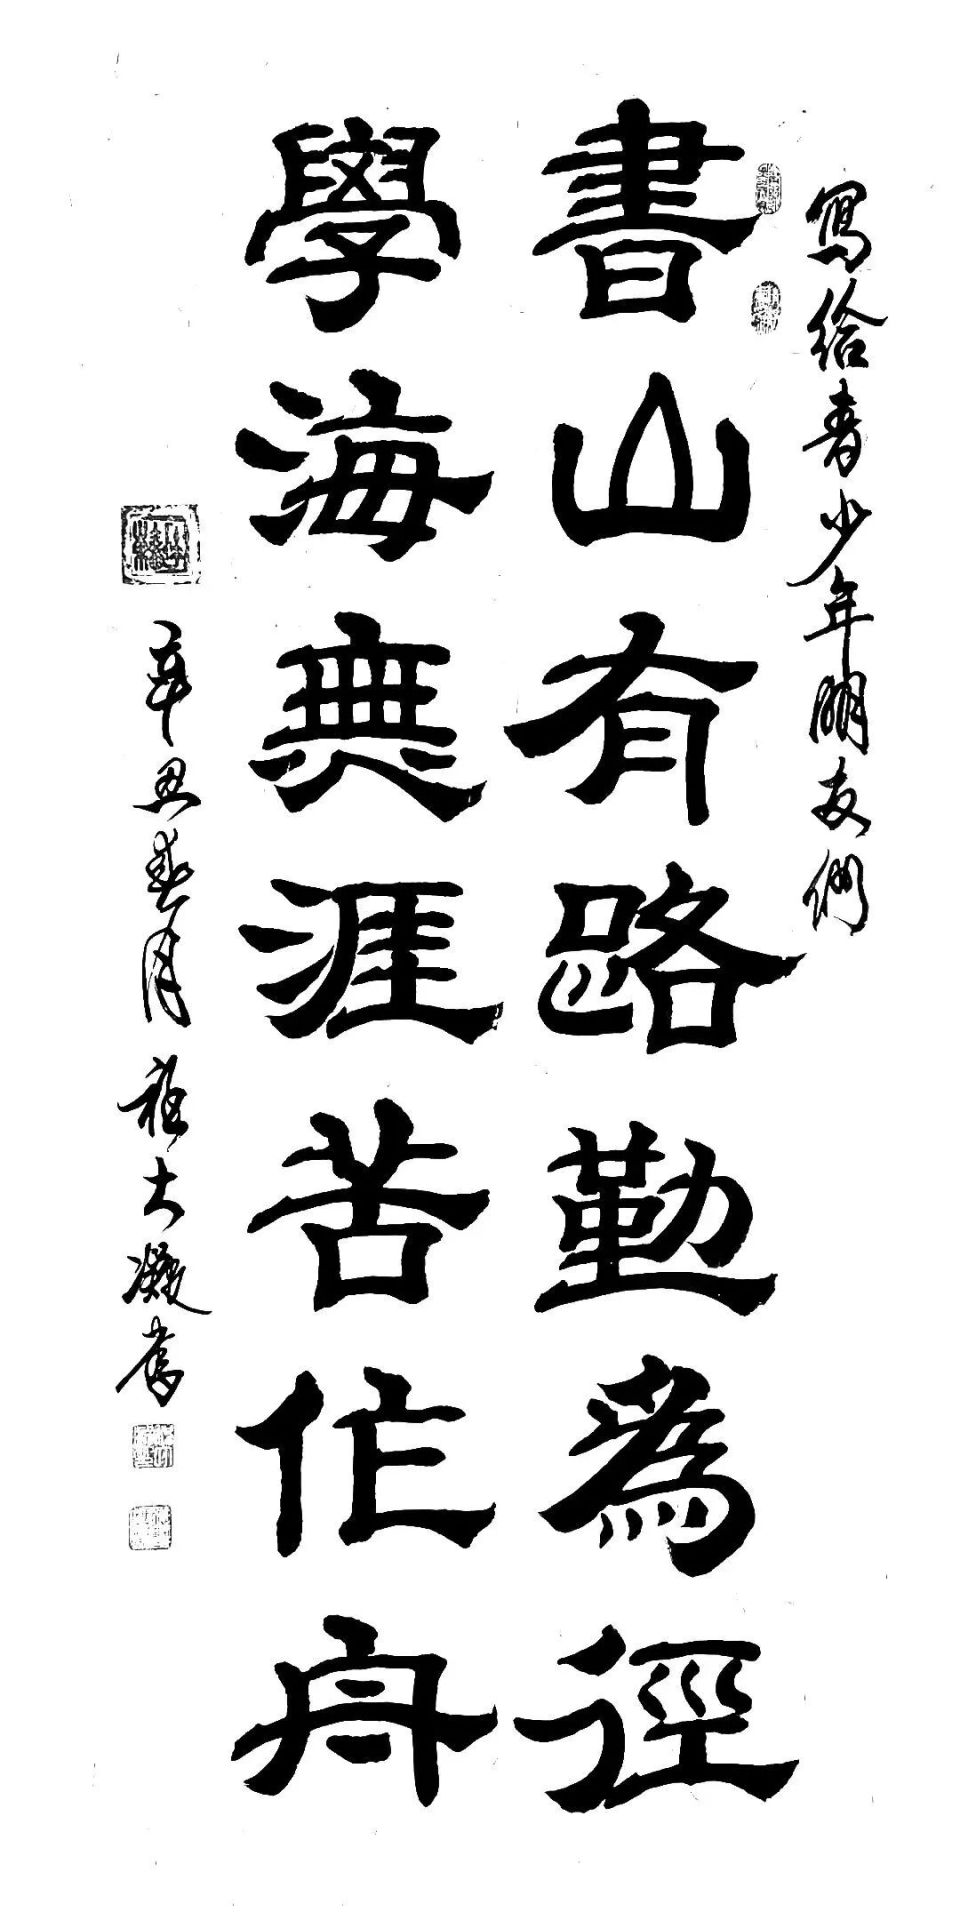 寫给青少年朋友們
書山有路勤為徑
學海無涯苦作舟
辛丑春月 程大凝書